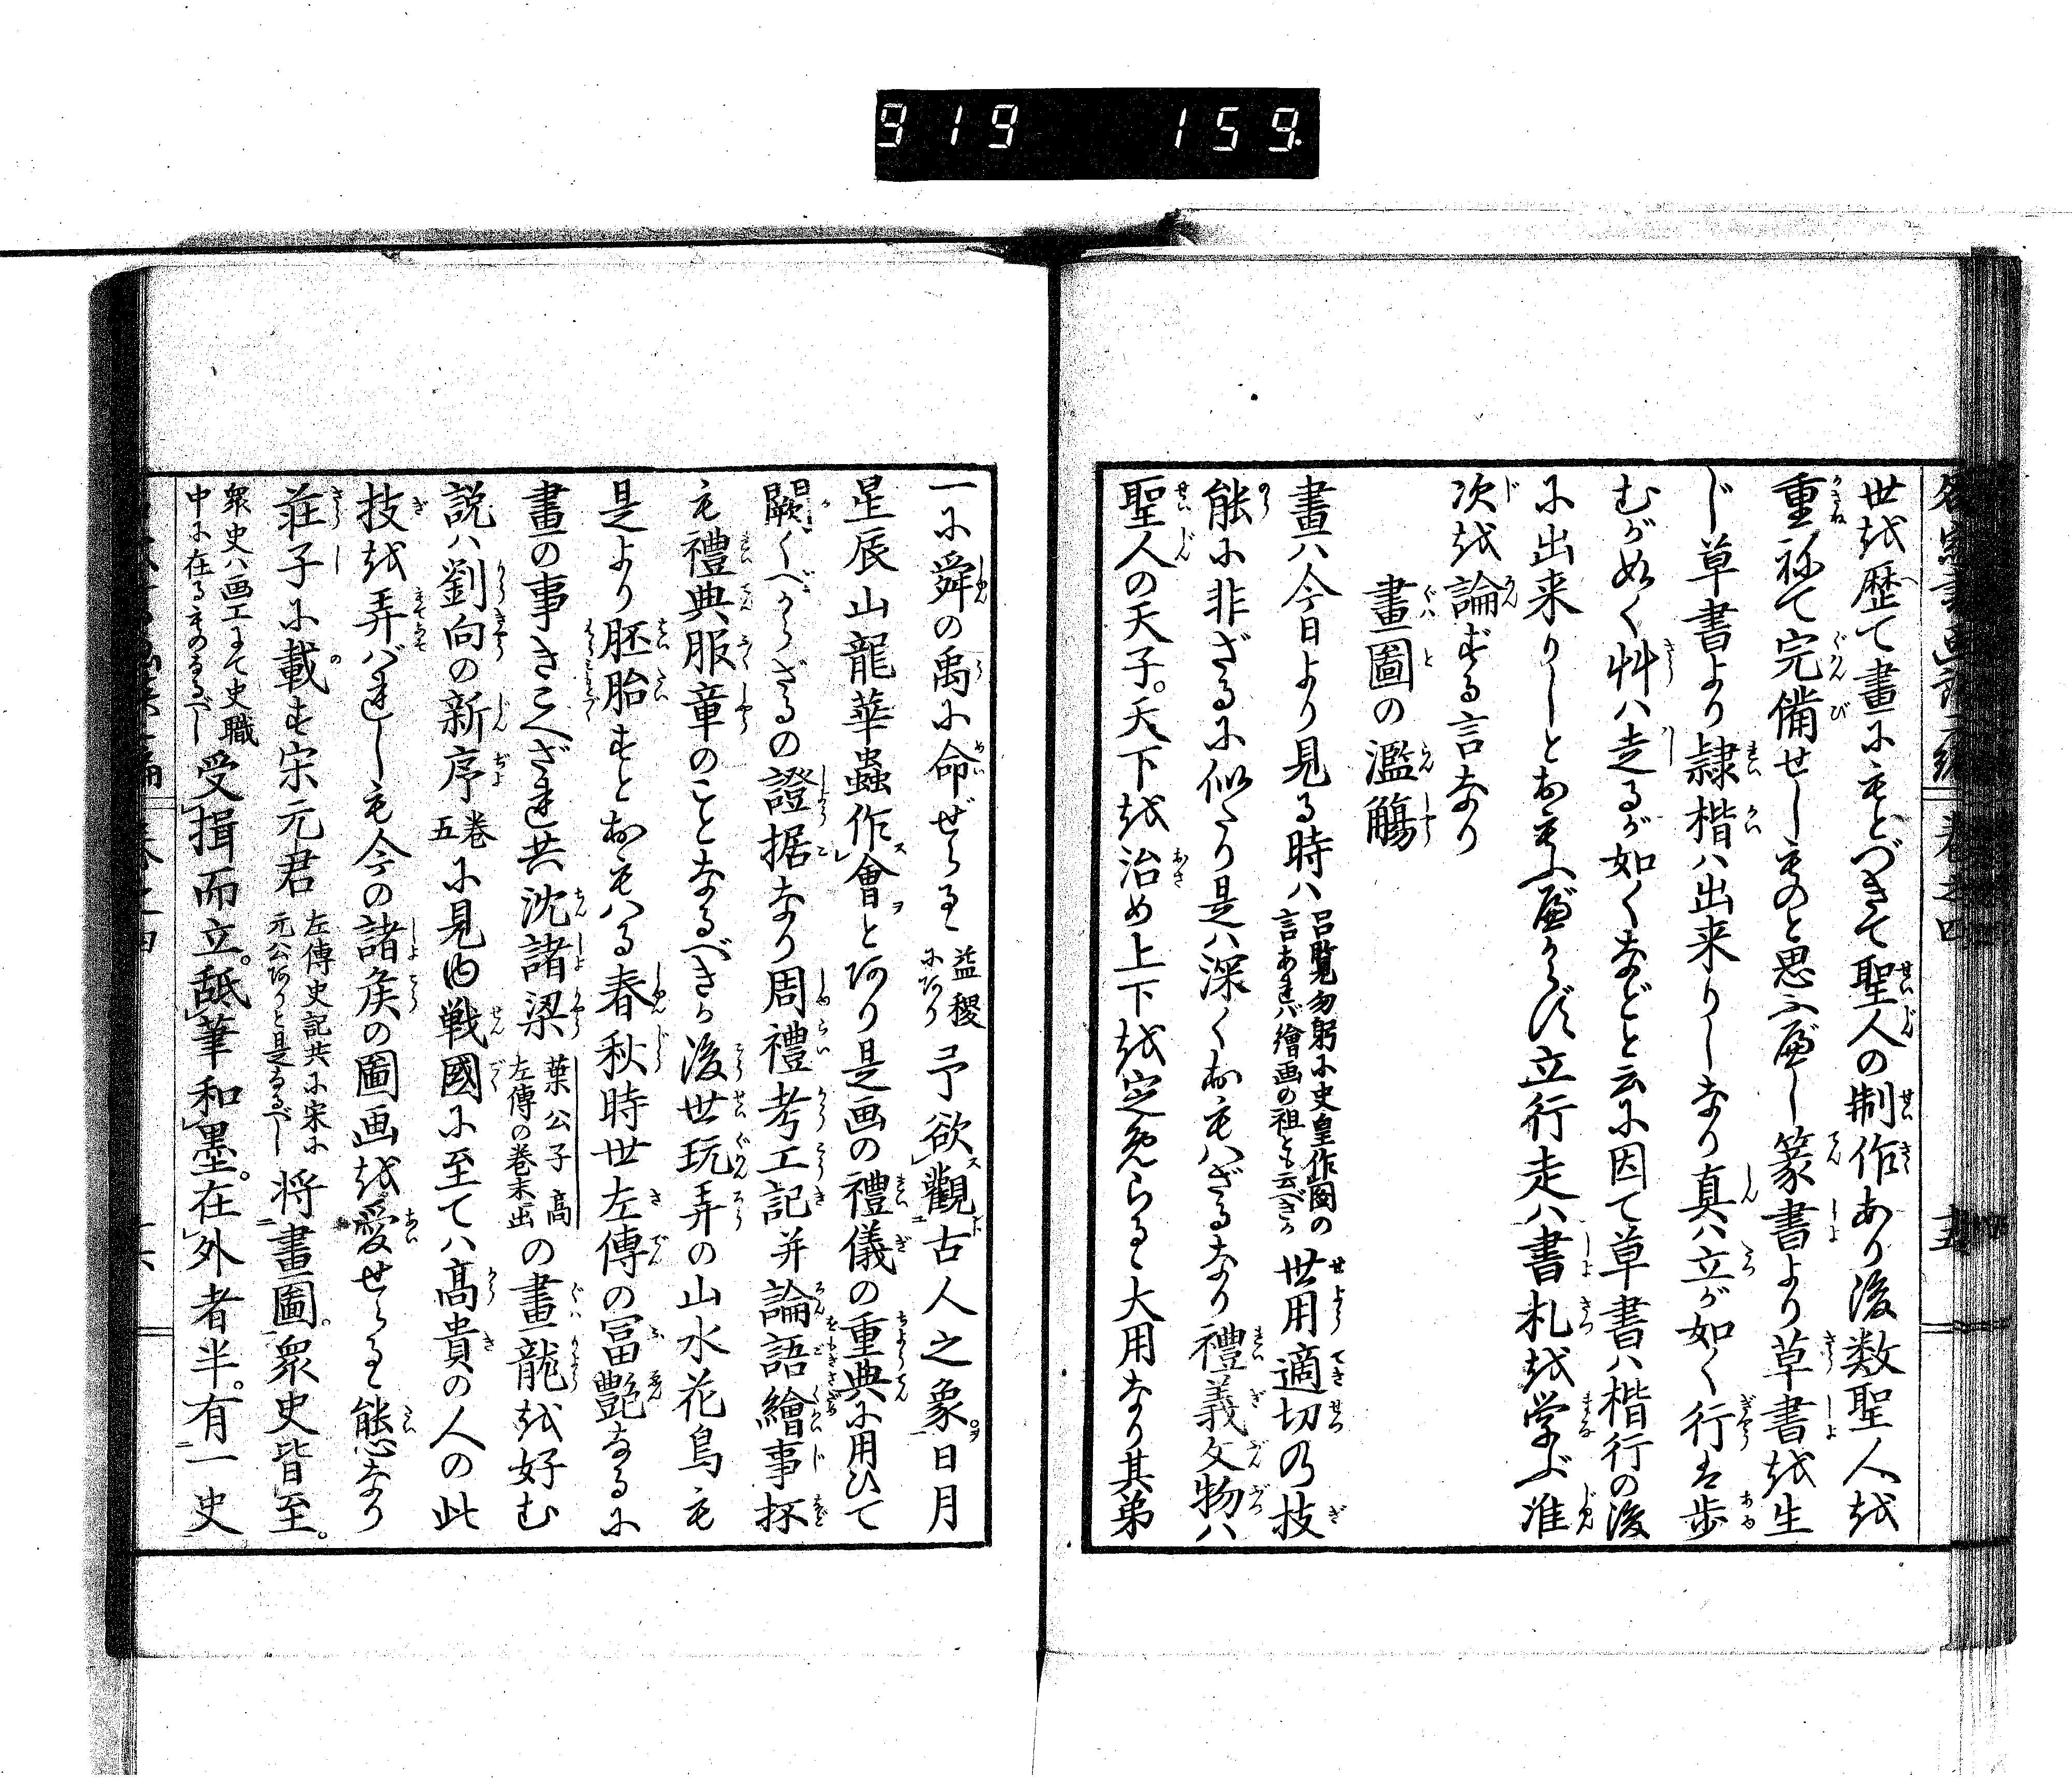 919 159.
世越歴て畫にもとづきて聖人の制作あり後数聖人越
重祢て完備せしものと思ふ屋し篆書より草書越生
じ草書より隷楷ハ出来りしなり真ハ立が如く行は歩
むがぬく艸ハ走るが如くなどと云に因て草書ハ楷行の後
に出来りしとおもふ屋からず立行走ハ書札越学ぶ准
次越論ずる言なり
畫圖の濫觴
畫ハ今日より見る時ハ
呂覧勿躬に史皇作圖の
言あれバ繪画の祖とも云べきか
世用適切の技
能に非ざるに似たり是ハ深くおもハざるなり禮義文物ハ
聖人の天子。天下越治め上下越定免らるゝ大用なり其弟
一に舜の禹に命ぜらるゝ
益稷
に阿り
予欲觀古人之象。日月
星辰山龍華蟲作會と阿り是画の禮儀の重典に用ひて
闕くべからざるの證据なり周禮考工記并論語繪事抔
も禮典服章のことなるべきか後世玩弄の山水花鳥も
是より胚胎すとおもハる春秋時世左傳の冨艶なるに
畫の事きこへざれ共沈諸梁
葉公子髙
左傳の巻末出
の畫龍越好む
説ハ劉向の新序
巻
五
に見ゆ戦國に至てハ髙貴の人の此
技越弄バれしも今の諸矦の圖画越愛せらるゝ態なり
莊子に載す宋元君
左傳史記共に宋に
元公阿りと是なるべし
将畫圖。衆史皆至。
衆史ハ画工にて史職
中に在るものなるべし
受揖而立。舐筆和墨。在外者半。有一史